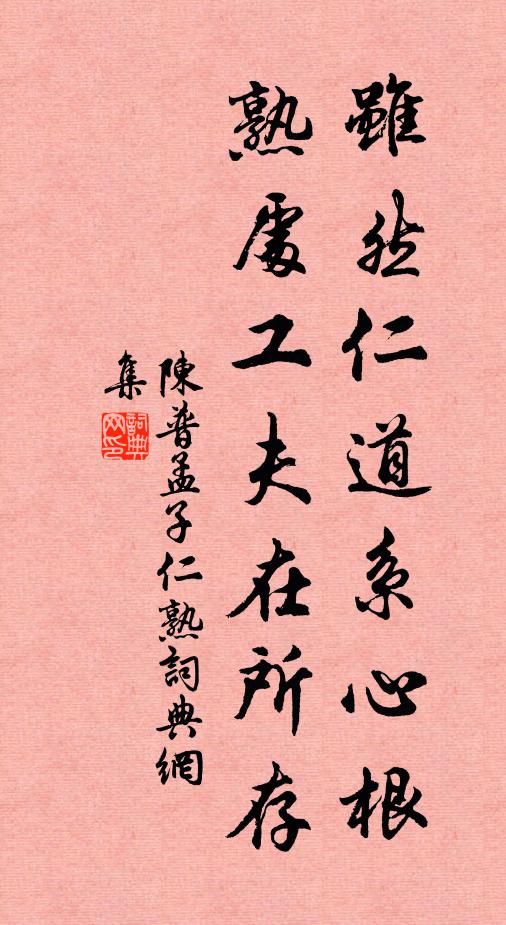 雖然仁道系心根
熟處工夫在所存
陳普孟子仁熟詞典網
集
詞典
网印